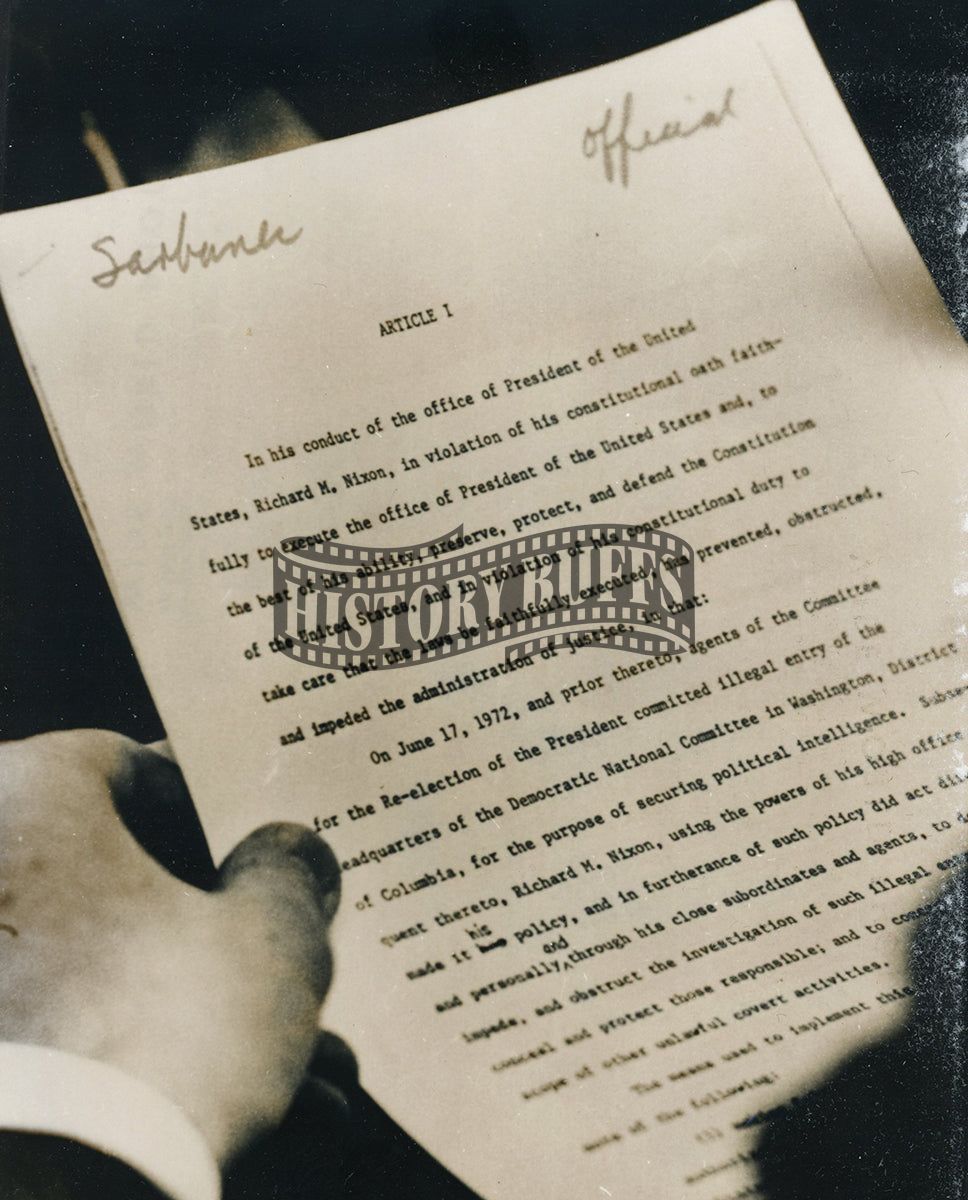 Sarbanes
official
ARTICLE I
In his conduct of the office of President of the United
States, Richard M. Nixon, in violation of his constitutional oath faith-
fully to execute the office of President of the United States and, to
the best of his ability, preserve, protect, and defend the Constitution
of the United States, and in violation of his constitutional duty to
take care that the laws be faithfully executed, has prevented, obstructed,
and impeded the administration of justice, in that:
On June 17, 1972, and prior thereto, agents of the Committee
for the Re-election of the President committed illegal entry of the
eadquarters of the Democratic National Committee in Washington, District
of Columbia, for the purpose of securing political intelligence. Subse
quent thereto, Richard M. Nixon, using the powers of his high office
made it his policy, and in furtherance of such policy did act di
and personally and through his close subordinates and agents, to d
impede, and obstruct the investigation of such illegal en
conceal and protect those responsible; and to conc
scope of other unlawful covert activities.
The means used to implement this
more of the following:
(1)
HISTORY BUFFS